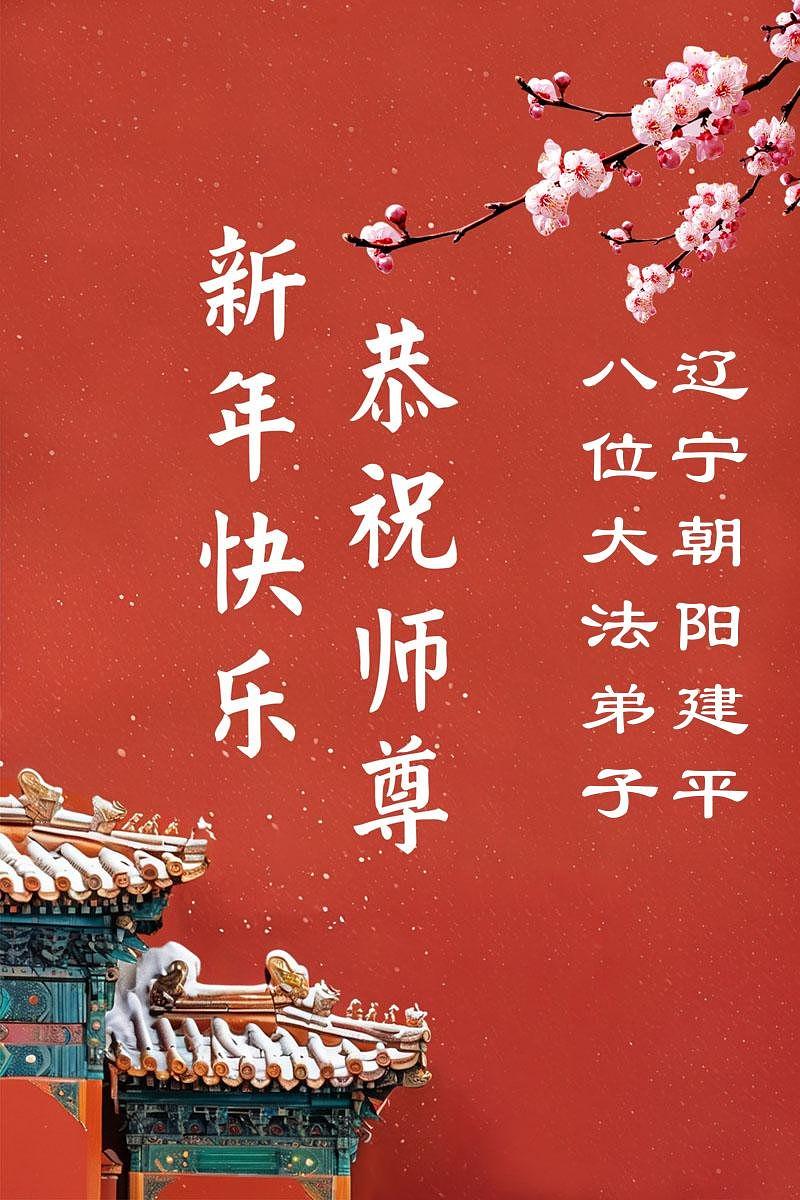 辽宁朝阳建平
八位大法弟子
恭祝师尊
新年快乐